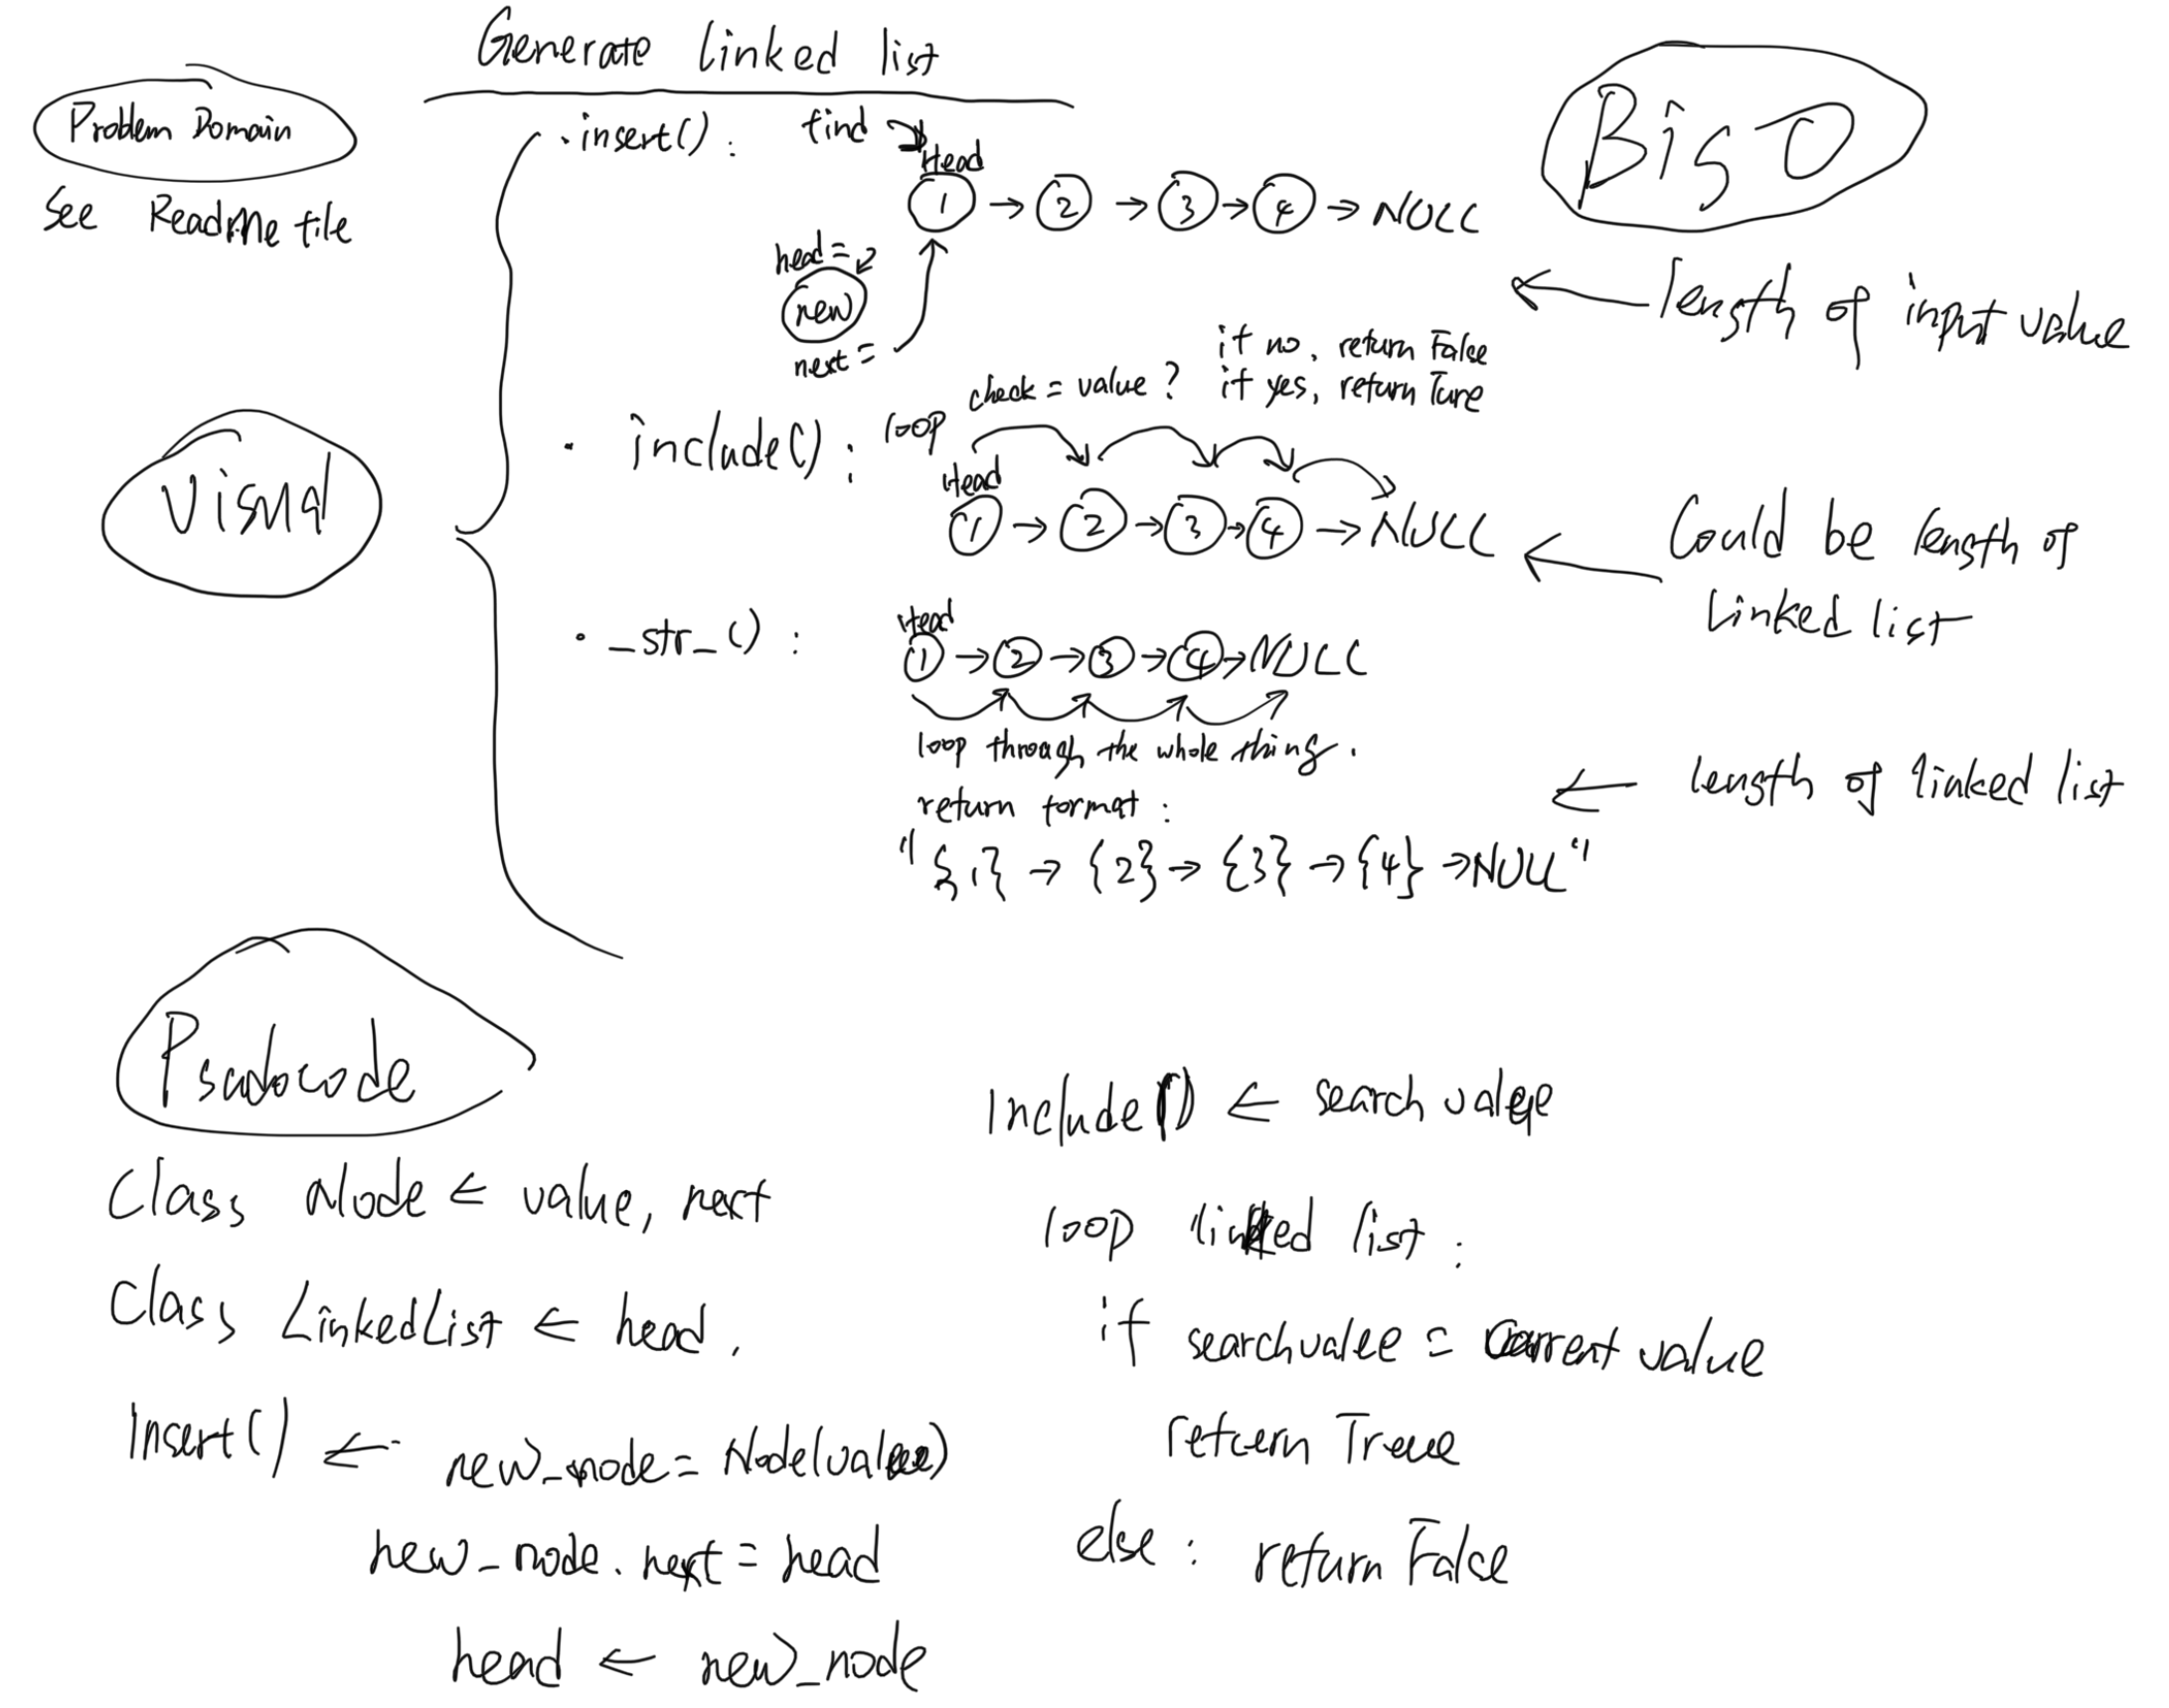 Generate linked list
Problem Domain
See ReadMe file
Big O
Visual
. insert() : find Head
1 → 2 → 3 → 4 → NULL
head =
new
next =
← length of input value
if no, return False
check = value ? if yes, return Ture
· include() : loop
Head
1 → 2 → 3 → 4 → NULL
← Could be length of
linked list
· _str_() :
Head
1 → 2 → 3 → 4 → NULL
loop through the whole thing.
return format :
"{1} → {2} → {3} → {4} → NULL"
← length of linked list
Psudocode
Class Node ← value, next
Class LinkedList ← head.
Insert() ← new_node = Node(value)
new_node.next = head
head ← new_node
Include() ← search value
loop linked list :
if search value = current value
return True
else : return False